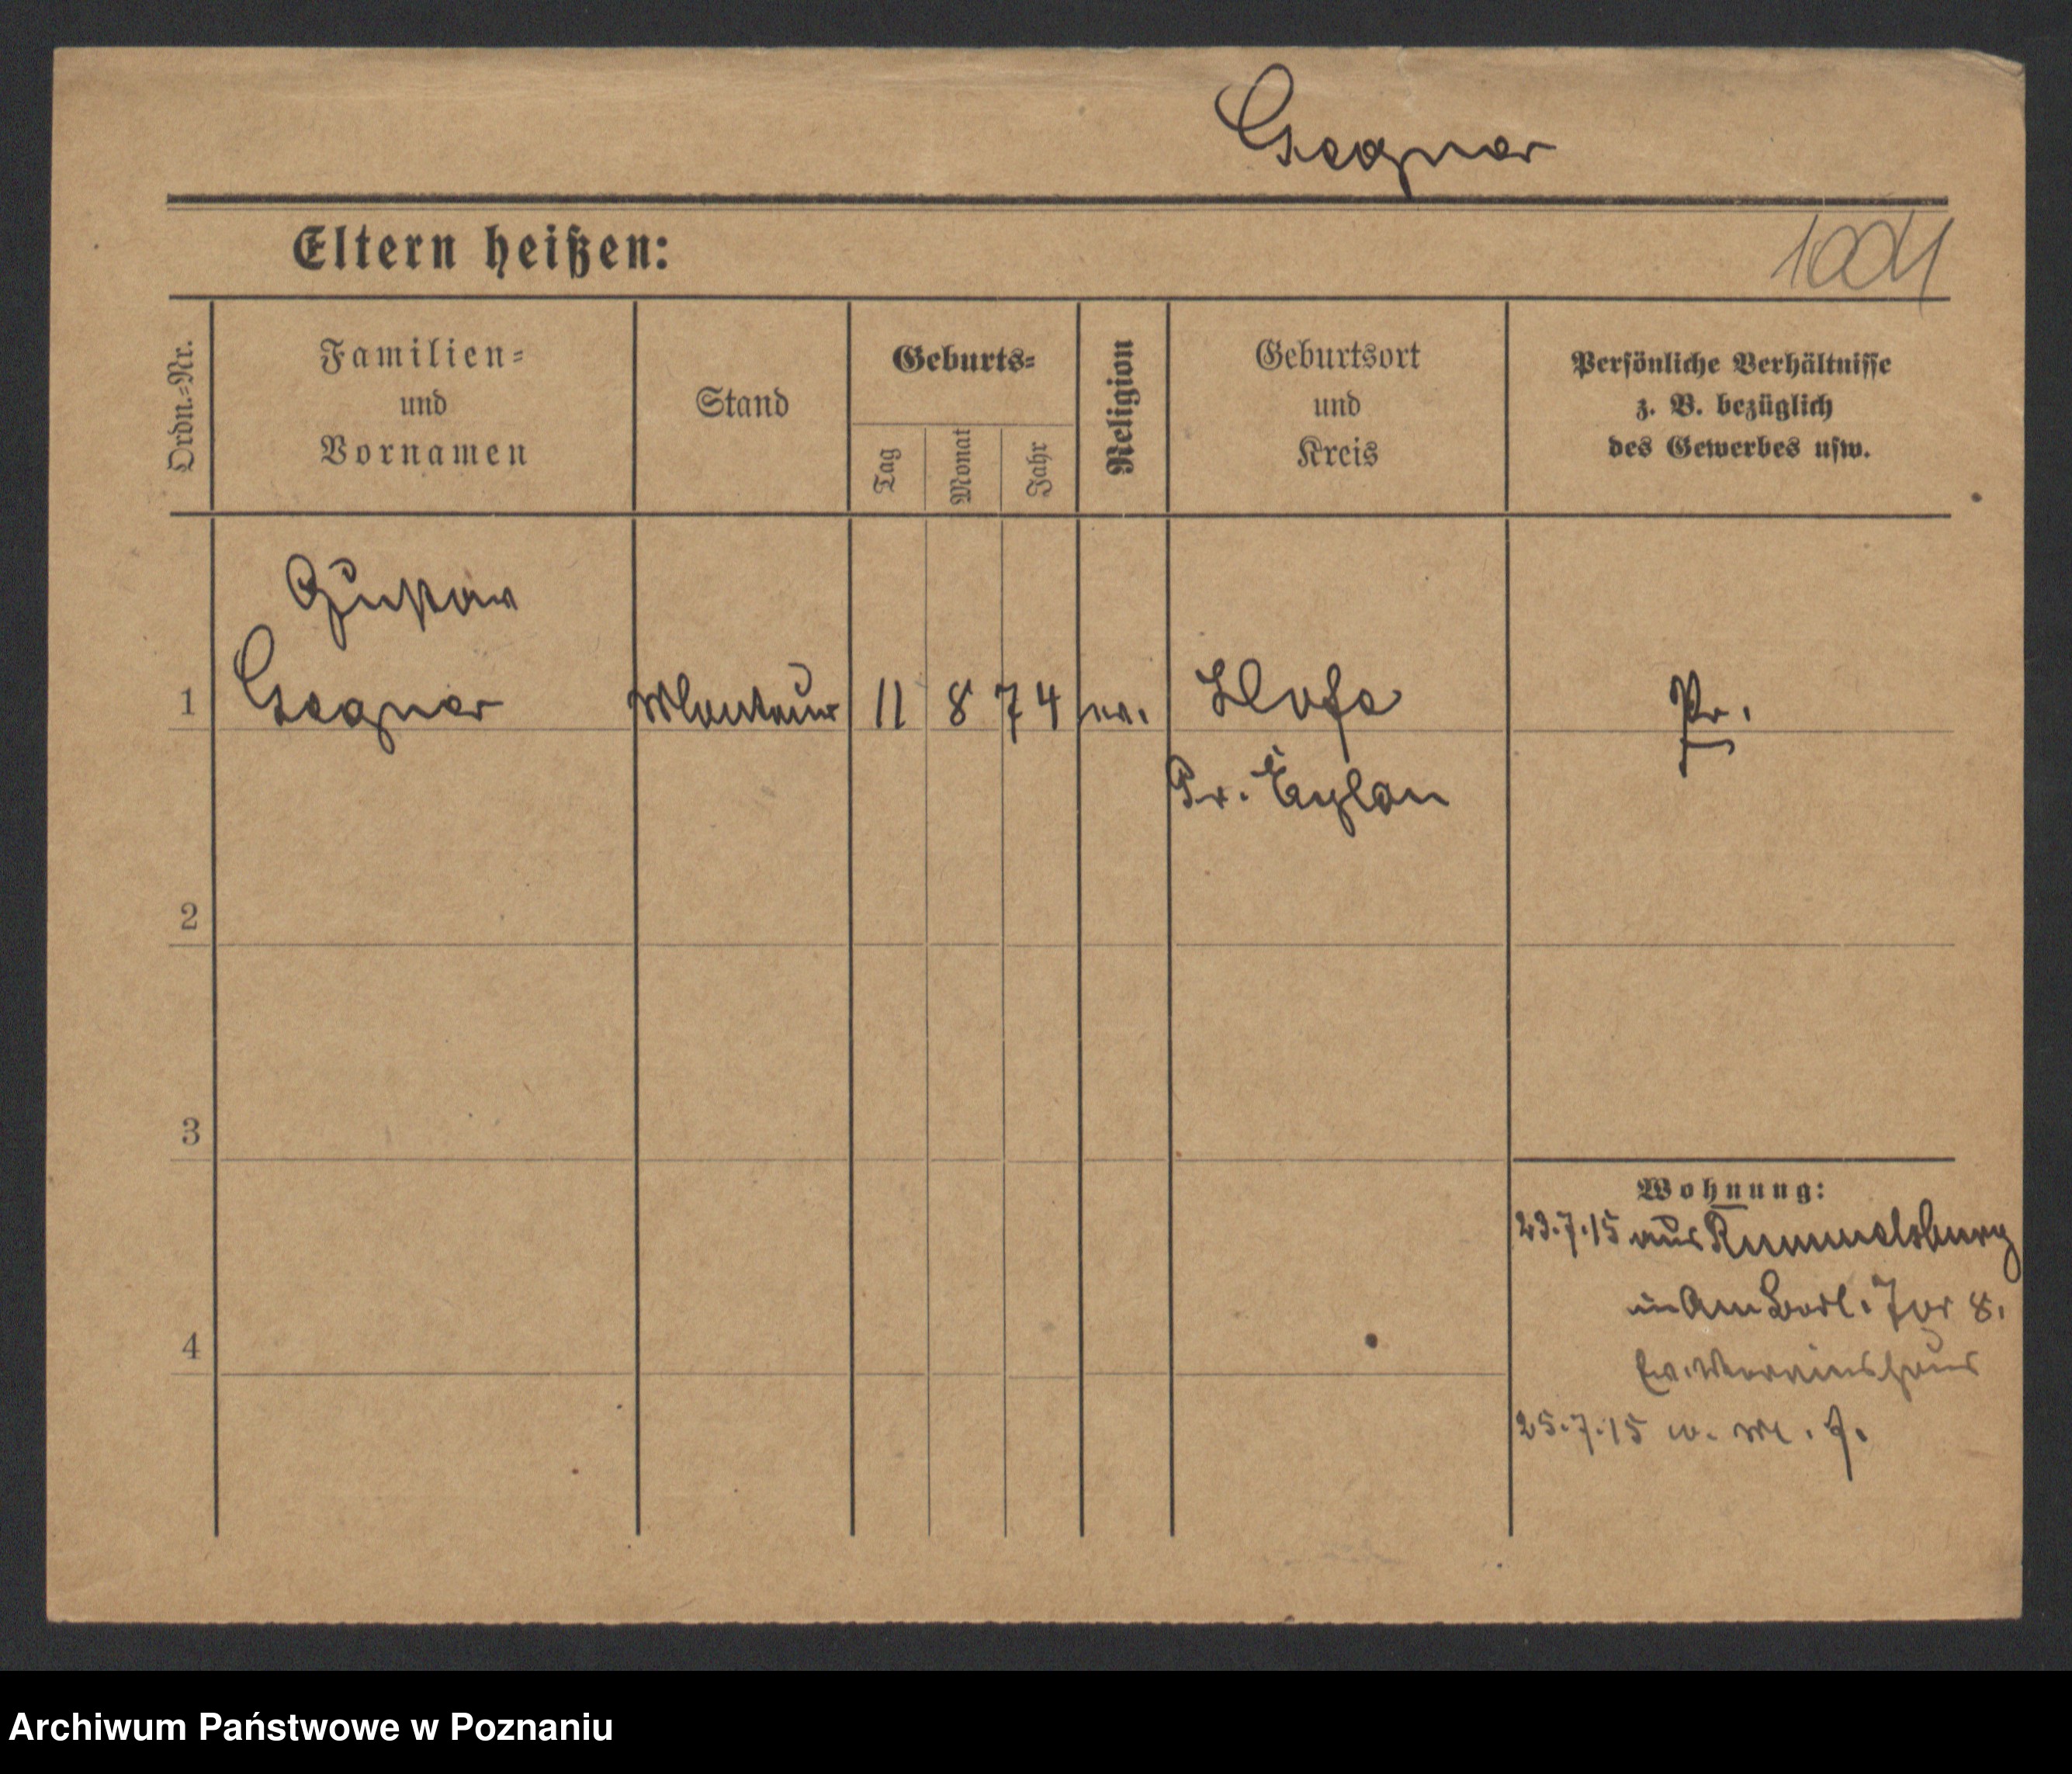 Gegner
Eltern heißen:
1004
Ordn.=Nr.
Familien=
und
Vornamen
Stand
Geburts=
Tag
Monat
Jahr
Religion
Geburtsort
und
Kreis
Persönliche Verhältnisse
z. B. bezüglich
des Gewerbes usw.
Gustav
1 Monteur 11 8 74 ev. Pr.
Pr. Eylau
2
3
4
Wohnung:
23.7.15 aus Rummelsburg
in Am Berl. Tor 8.
Ev. Vereinshaus
25.7.15
Archiwum Państwowe w Poznaniu